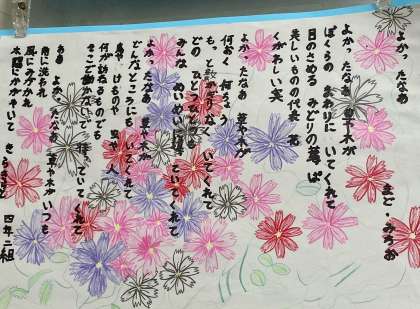 よかったなあ
まど・みちお
よかったなあ 草や木が
ぼくらの まわりに いてくれて
目のさめる みどりの葉っぱ
美しいものの代表 花
かぐわしい実
よかったなあ 草や木が
何おく 何ちょう
もっと数かぎりなく いてくれて
どの ひとつひとつも
みんな めいめいに違っていてくれて
よかったなあ 草や木が
どんなところにも いてくれて
鳥や けものや 虫や 人
何が訪れるのをでも
そこで動かないで 待っていてくれて
ああ よかったなあ 草や木がいつも
雨に洗われ
風にみがかれ
太陽にかがやいて きらきらと
四年二組